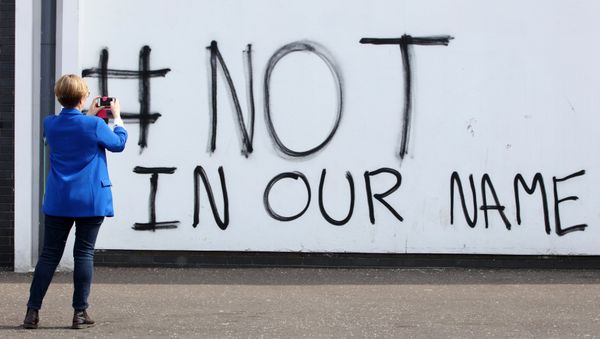 #NOT
IN OUR NAME